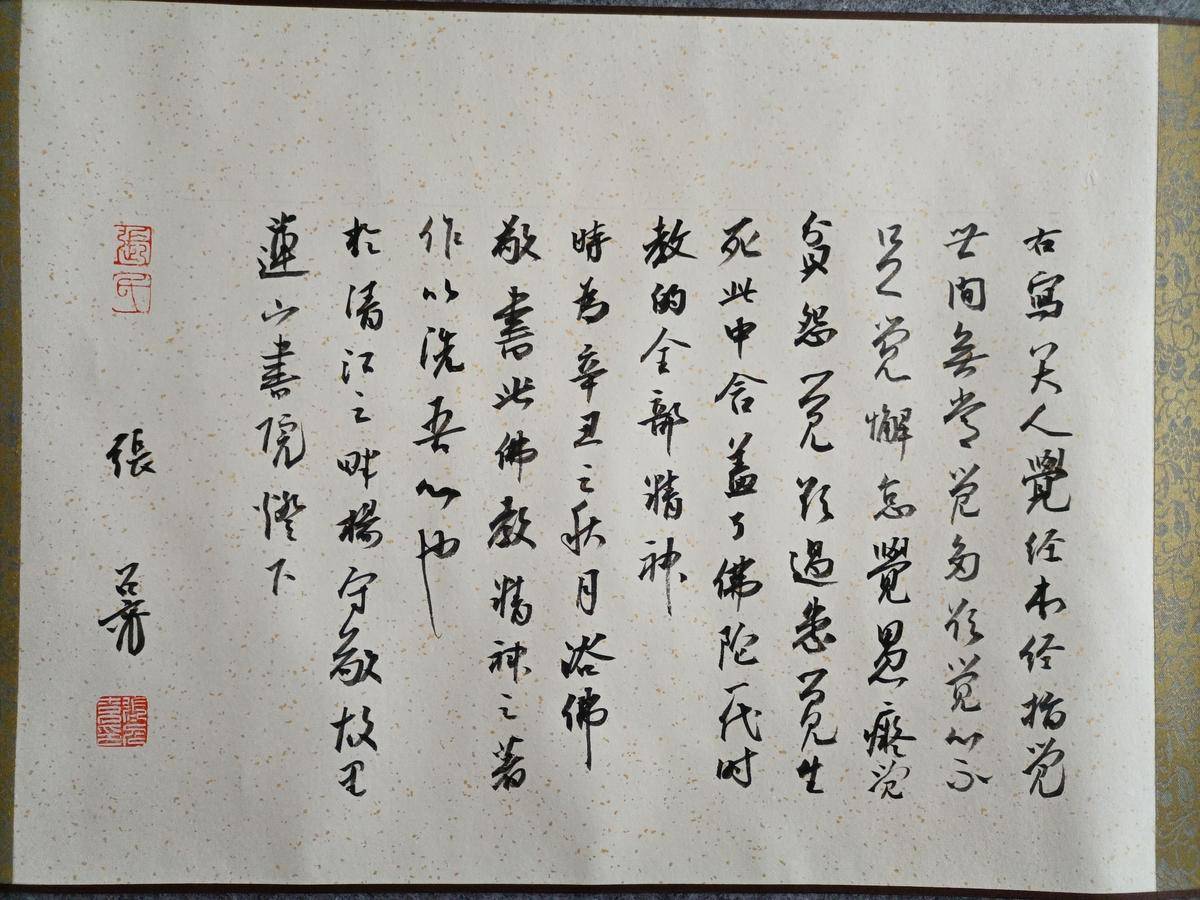 右寫大人覺经本经指觉
世间無常觉多欲觉心不
足觉懈怠覺愚癡觉
貧怨觉欲過患觉生
死此中含盖了佛陀一代时
教的全部精神
時為辛丑之秋月浴佛
敬書此佛教精神之著
作以洗吾心也
於清江之畔楊守敬故里
蓮山書院燈下
張